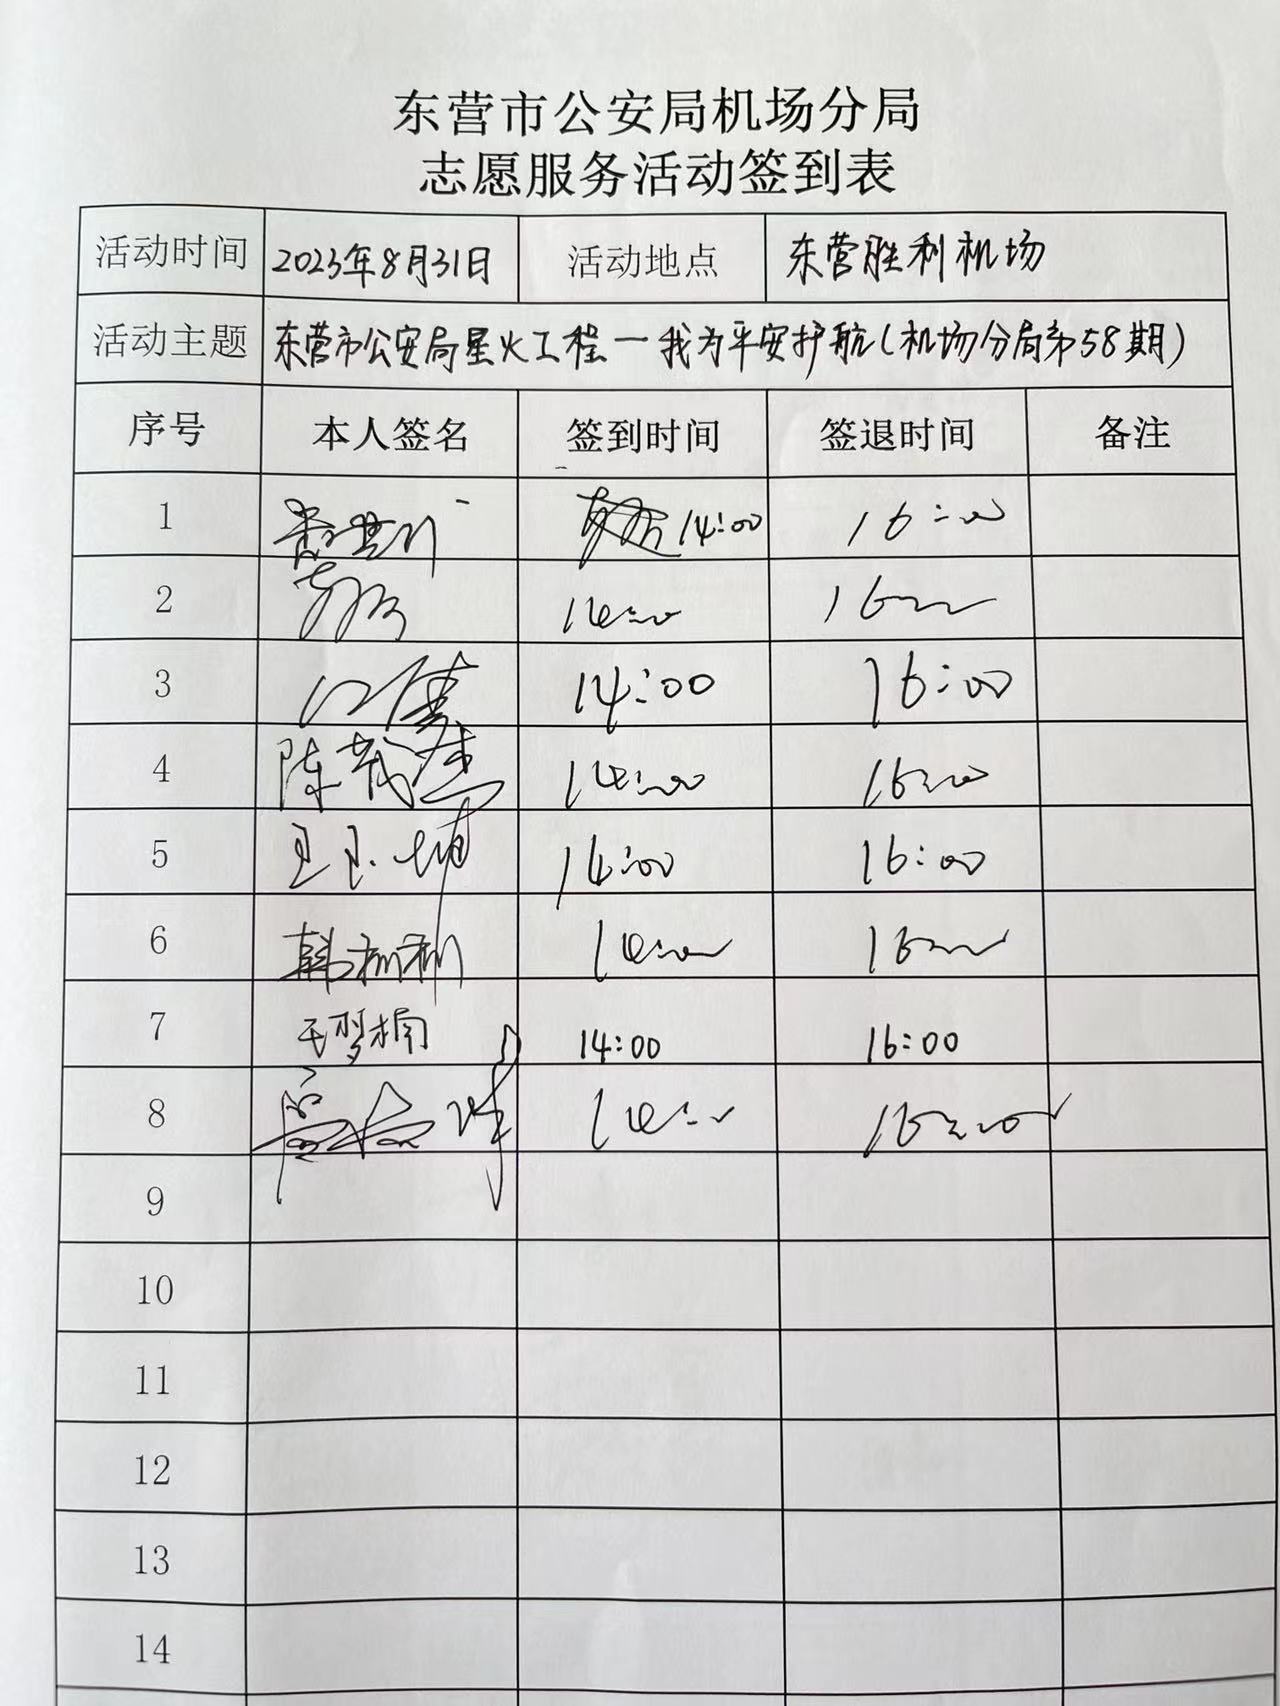 东营市公安局机场分局
志愿服务活动签到表
活动时间 2023年8月31日 活动地点 东营胜利机场
活动主题 东营市公安局星火工程一我为平安护航(机场分局第58期)
序号 本人签名 签到时间 签退时间 备注
1 14:00 16:00
2 14:00 16:00
3 14:00 16:00
4 陈 14:00 16:00
5 王玉 14:00 16:00
6 韩 14:00 16:00
7 王梦楠 14:00 16:00
8 14:00 16:00
9
10
11
12
13
14